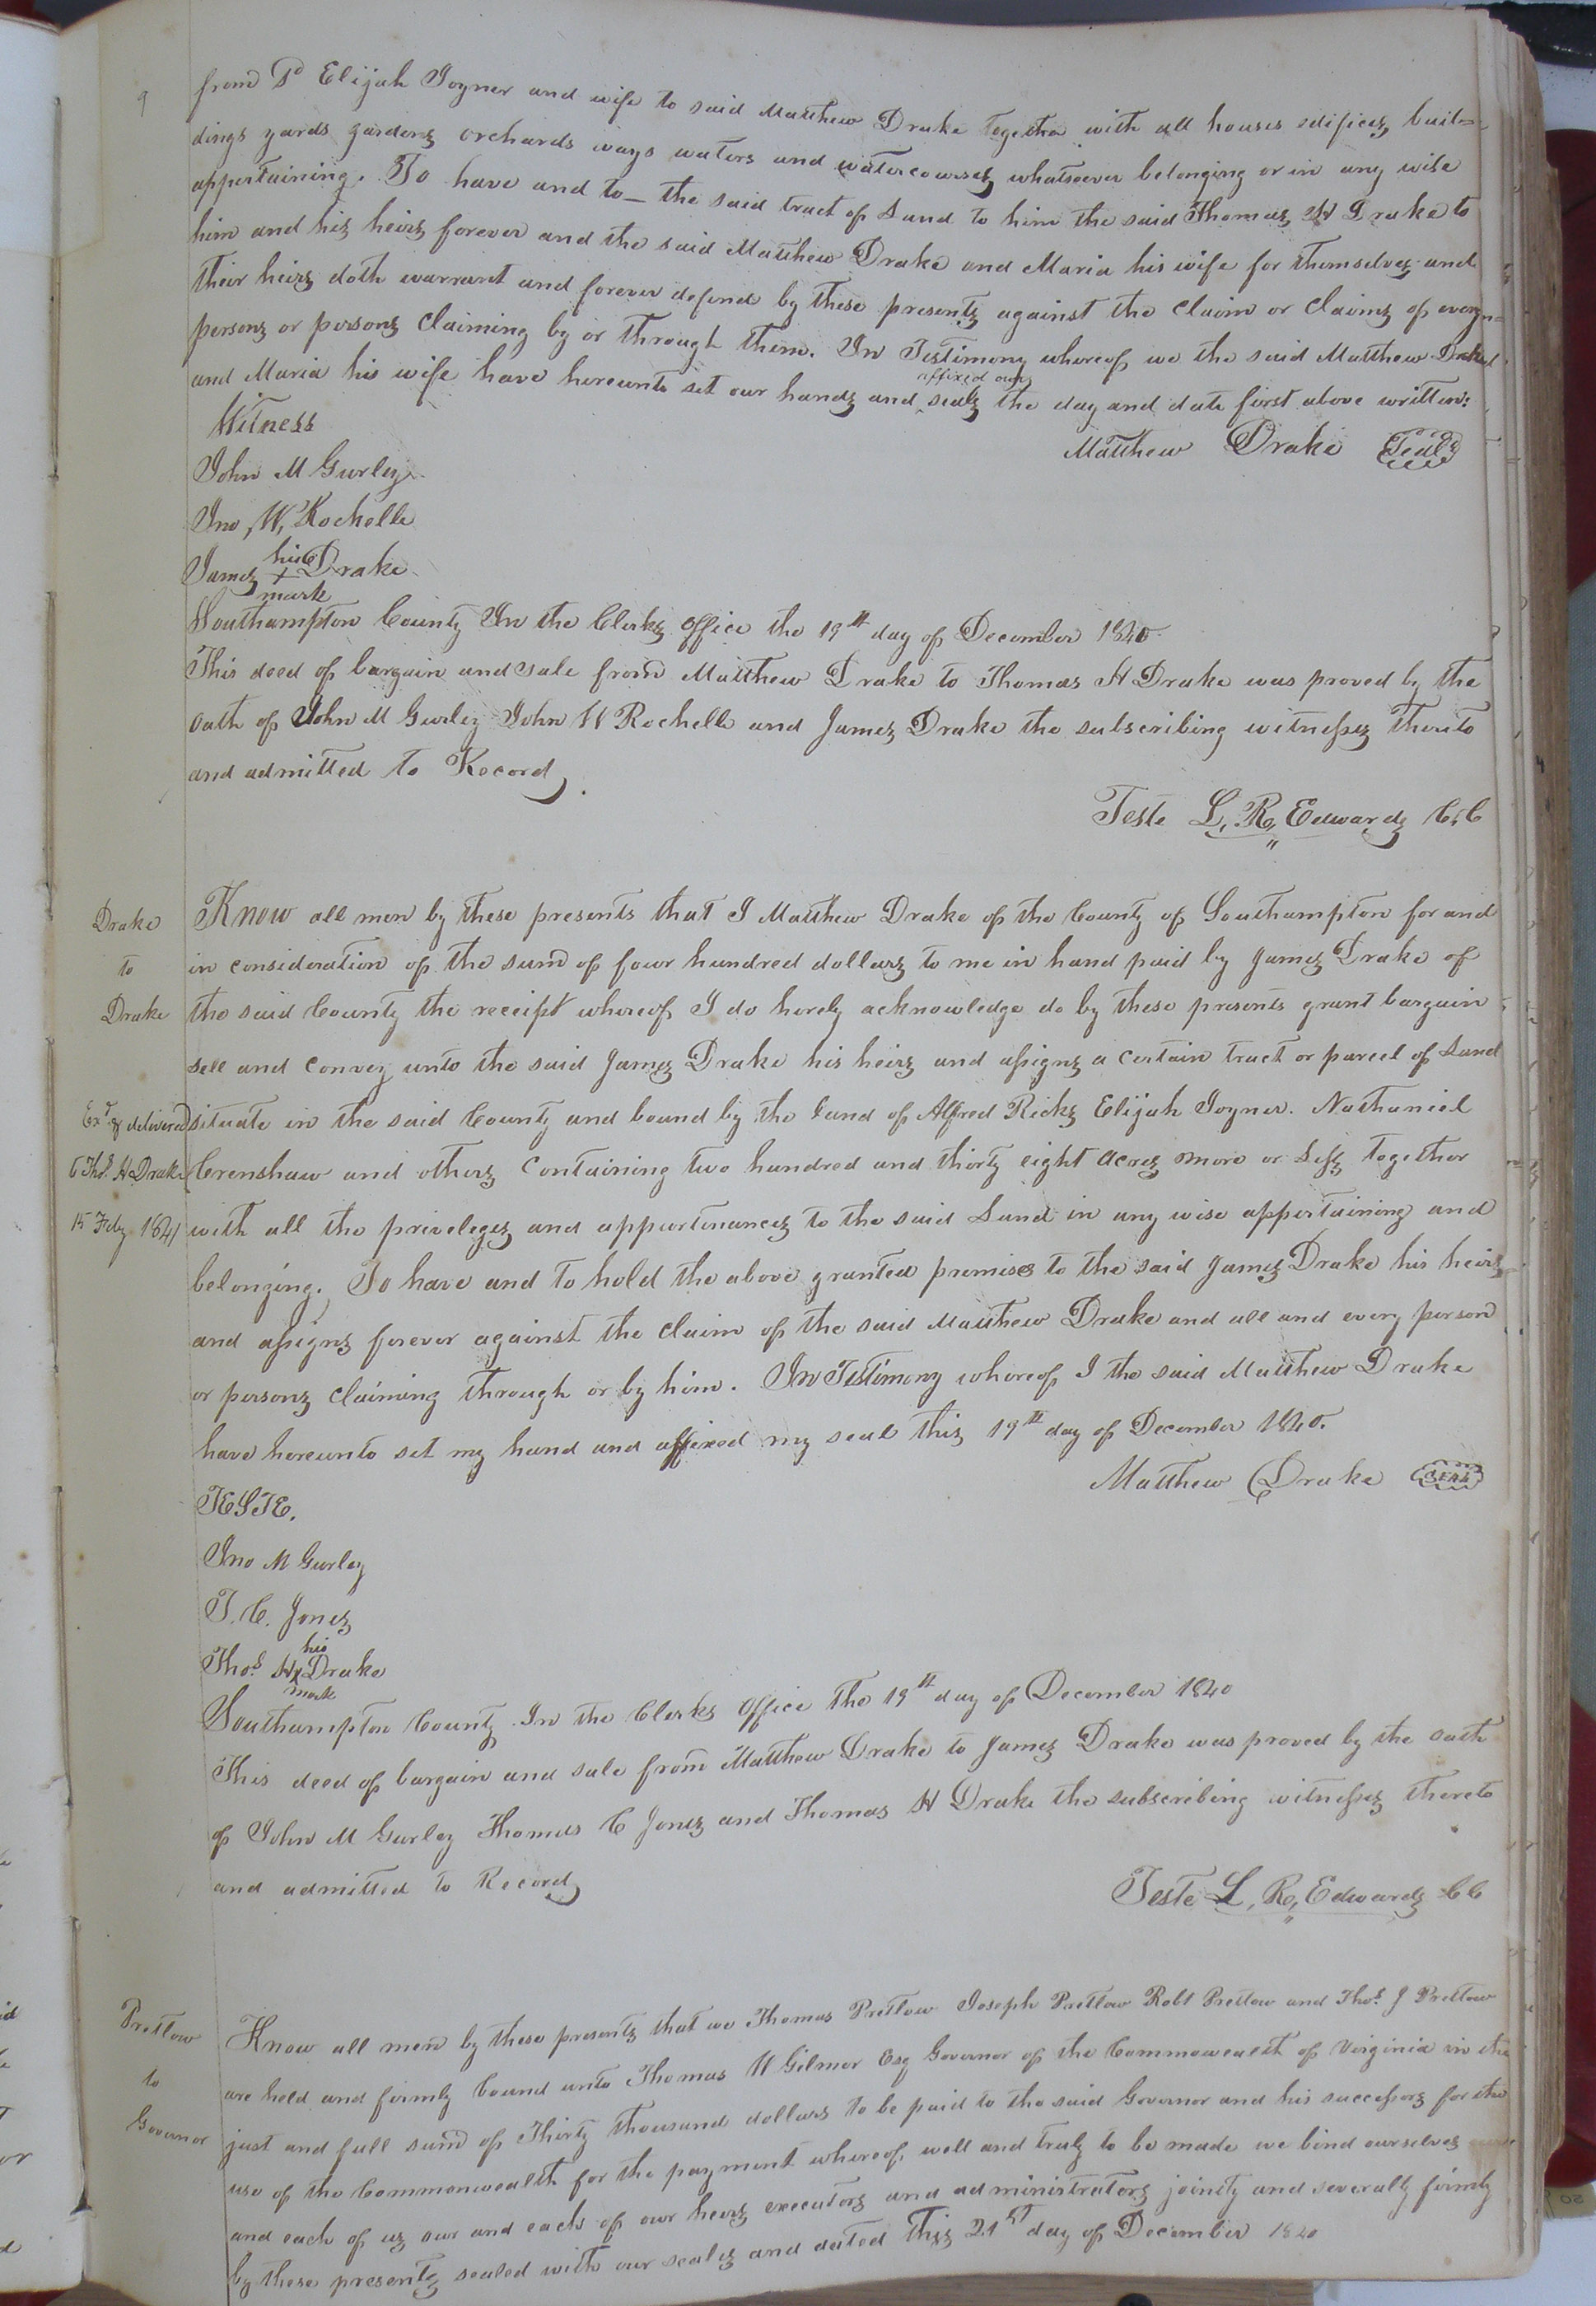 9
from Sd Elijah Joyner and wife to said Matthew Drake together with all houses edifices, buil=
dings yards gardens orchards ways waters and watercourses whatsoever belonging or in any wise
appertaining. To have and to — the said tract of Land to him the said Thomas H Drake to
him and his heirs forever and the said Matthew Drake and Maria his wife for themselves and
their heirs doth warrant and forever defend by these presents against the claim or claims of every
persons or persons claiming by or through them. In Testimony whereof we the said Matthew Drake
and Maria his wife have hereunto set our hands and affixed our seals the day and date first above written.
Witness
Matthew Drake Seal
John M Gurley
Jno, W, Rochelle
James his + mark Drake
Southampton County In the Clerks Office the 19th day of December 1840
This deed of bargain and sale from Matthew Drake to Thomas H Drake was proved by the
oath of John M Gurley John W Rochelle and James Drake the subscribing witnesses thereto
and admitted to Record.
Teste L, R, Edwards C,C
Drake
to
Drake
Exd & delivered
to Thos. H Drake
15 Feby 1841
Know all men by these presents that I Matthew Drake of the County of Southampton for and
in consideration of the sum of four hundred dollars to me in hand paid by James Drake of
the said County the receipt whereof I do herely acknowledge do by these presents grant bargain
sell and convey unto the said James Drake his heirs and assigns a certain tract or parcel of Land
situate in the said County and bound by the land of Alfred Ricks Elijah Joyner. Nathaniel
Crenshaw and others containing two hundred and thirty eight acres more or less together
with all the priveleges and appurtenances to the said Land in any wise appertaining and
belonging. To have and to hold the above granted premises to the said James Drake his heirs
and assigns forever against the claim of the said Matthew Drake and all and every person
or persons claiming through or by him. In Testimony whereof I the said Matthew Drake
have hereunto set my hand and affixed my seal this 19th day of December 1840.
Matthew Drake SEAL
TESTE.
Jno M Gurley
T. C. Jones
Thos. H his x mark Drake
Southampton County. In the Clerks Office the 19th day of December 1840
This deed of bargain and sale from Matthew Drake to James Drake was proved by the oath
of John M Gurley Thomas C Jones and Thomas H Drake the subscribing witnesses thereto
and admitted to Record
Teste L, R, Edwards CC
Pretlow
to
Governor
Know all men by these presents that we Thomas Pretlow Joseph Pretlow Robt Pretlow and Thos. J Pretlow
are held and firmly bound unto Thomas W Gilmer Esq Governor of the Commonwealth of Virginia in the
just and full sum of Thirty thousand dollars to be paid to the said Governor and his successors for the
use of the Commonwealth for the payment whereof, well and truly to be made we bind ourselves
and each of us our and each of our heirs executors and administrators jointy and severally firmly
by these presents sealed with our seales and dated this 21st day of December 1840